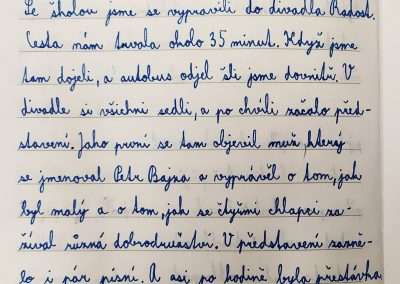 Se školou jsme se vypravili do divadla Radost.
Cesta nám trvala okolo 35 minut. Když jsme
tam dojeli, a autobus odjel šli jsme dovnitř. V
divadle si všichni sedli, a po chvíli začalo před-
stavení. Jako první se tam objevil muž, který
se jmenoval Petr Bajza a vyprávěl o tom, jak
byl malý a o tom, jak se čtyřmi chlapci za-
žíval různá dobrodružství. V představení zazně-
lo i pár písní. A asi po hodině byla přestávka